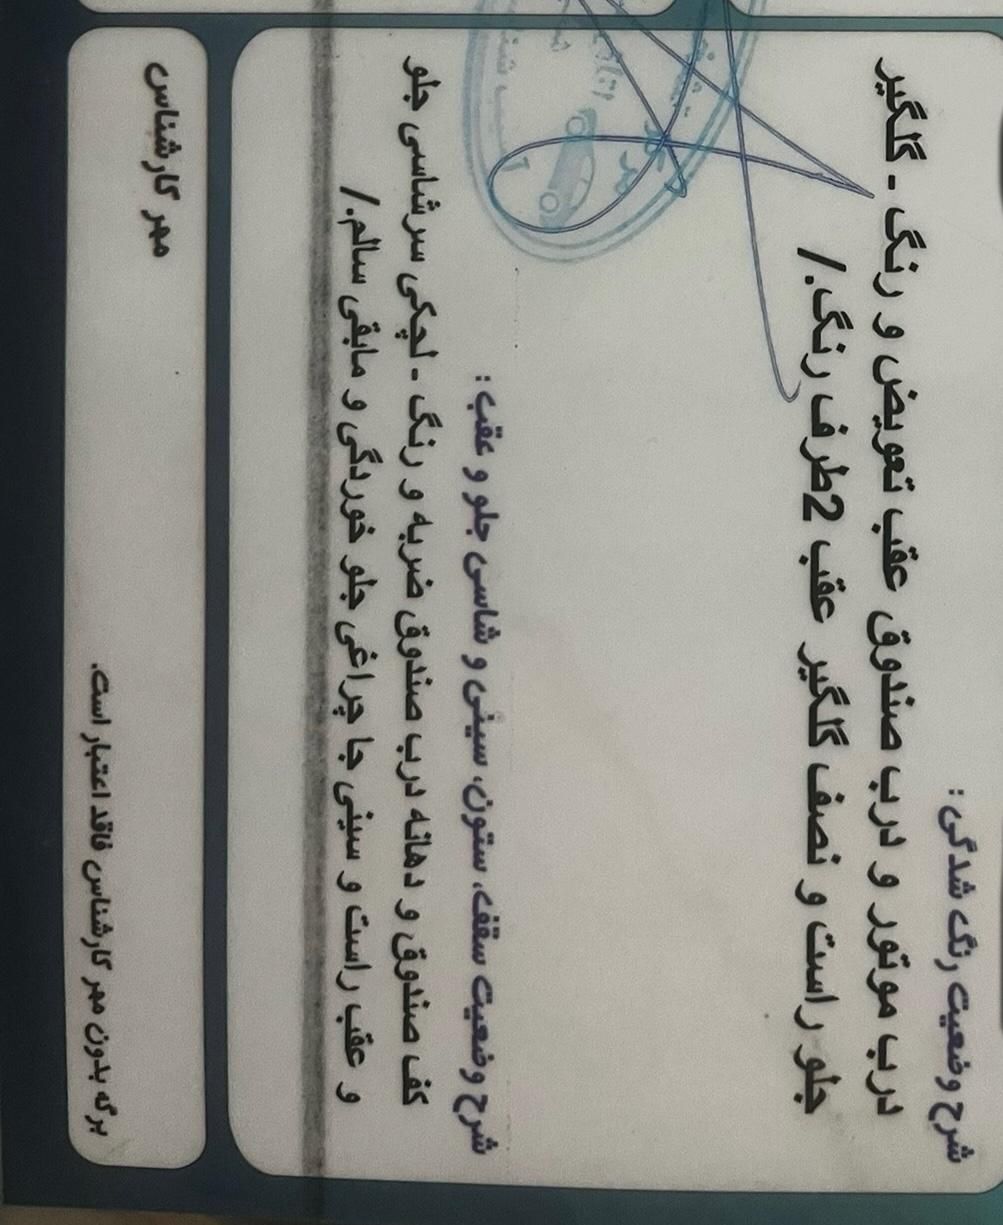 شرح وضعیت رنگ شدگی :
درب موتور و درب صندوق عقب تعویض و رنگ - گلگیر
جلو راست و نصف گلگیر عقب 2طرف رنگ./
شرح وضعیت سقف، ستون، سینی و شاسی جلو و عقب :
کف صندوق و دهانه درب صندوق ضربه و رنگ - لچکی سرشاسی جلو
و عقب راست و سینی جا چراغی جلو خوردگی و مابقی سالم./
مهر کارشناس
برگه بدون مهر کارشناس فاقد اعتبار است.